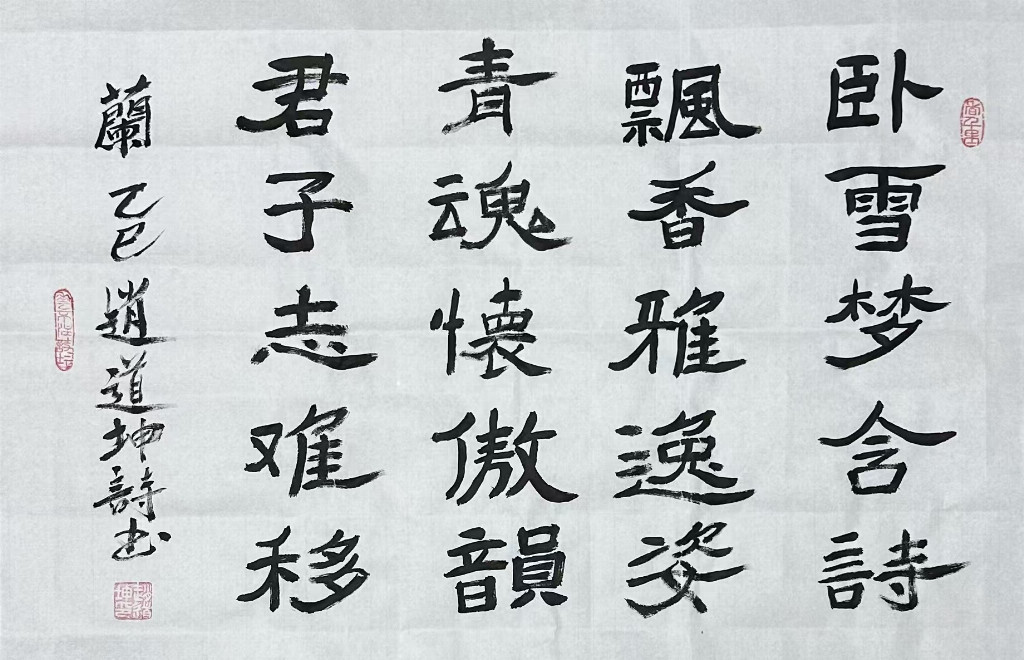 卧雪梦含詩
飄香雅逸姿
青魂懷傲韻
君子志难移
蘭 乙巳 趙道坤詩书